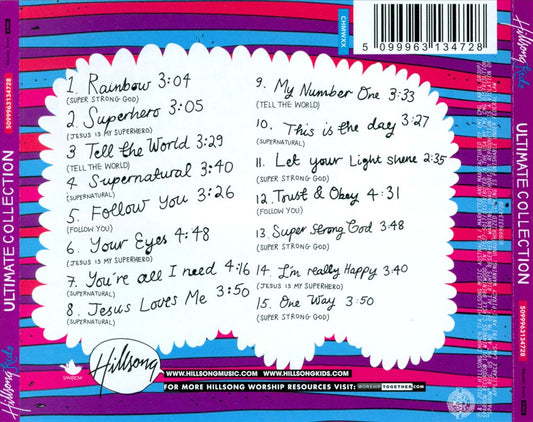 CHMWXX
5 099963 134728
1. Rainbow 3:04
(SUPER STRONG GOD)
2. Superhero 3:05
(JESUS IS MY SUPERHERO)
3 Tell the World 3:29
(TELL THE WORLD)
4. Supernatural 3:40
(SUPERNATURAL)
5. Follow You 3:26
(FOLLOW YOU)
6. Your Eyes 4:48
(JESUS IS MY SUPERHERO)
7. You're all I need 4:16
(SUPERNATURAL)
8. Jesus Loves Me 3:50
9. My Number One 3:33
(TELL THE WORLD)
10. This is the day 3:27
(SUPERNATURAL)
11. Let your Light shene 2:35
(SUPER STRONG GOD)
12. Toust & Obey 4:31
(FOLLOW YOU)
13. Super Strong God 3:48
(SUPER STRONG GOD)
14. I'm really Happy 3:40
(JESUS IS MY SUPERHERO)
15. One Way 3:50
(SUPER STRONG GOD)
SPARROW
Hillsong
WWW.HILLSONGMUSIC.COM • WWW.HILLSONGKIDS.COM
FOR MORE HILLSONG WORSHIP RESOURCES VISIT: WORSHIPTOGETHER.COM
Hillsong Kids
ULTIMATE COLLECTION
5099963134728
Hillsong Kids
ULTIMATE COLLECTION
5099963134728